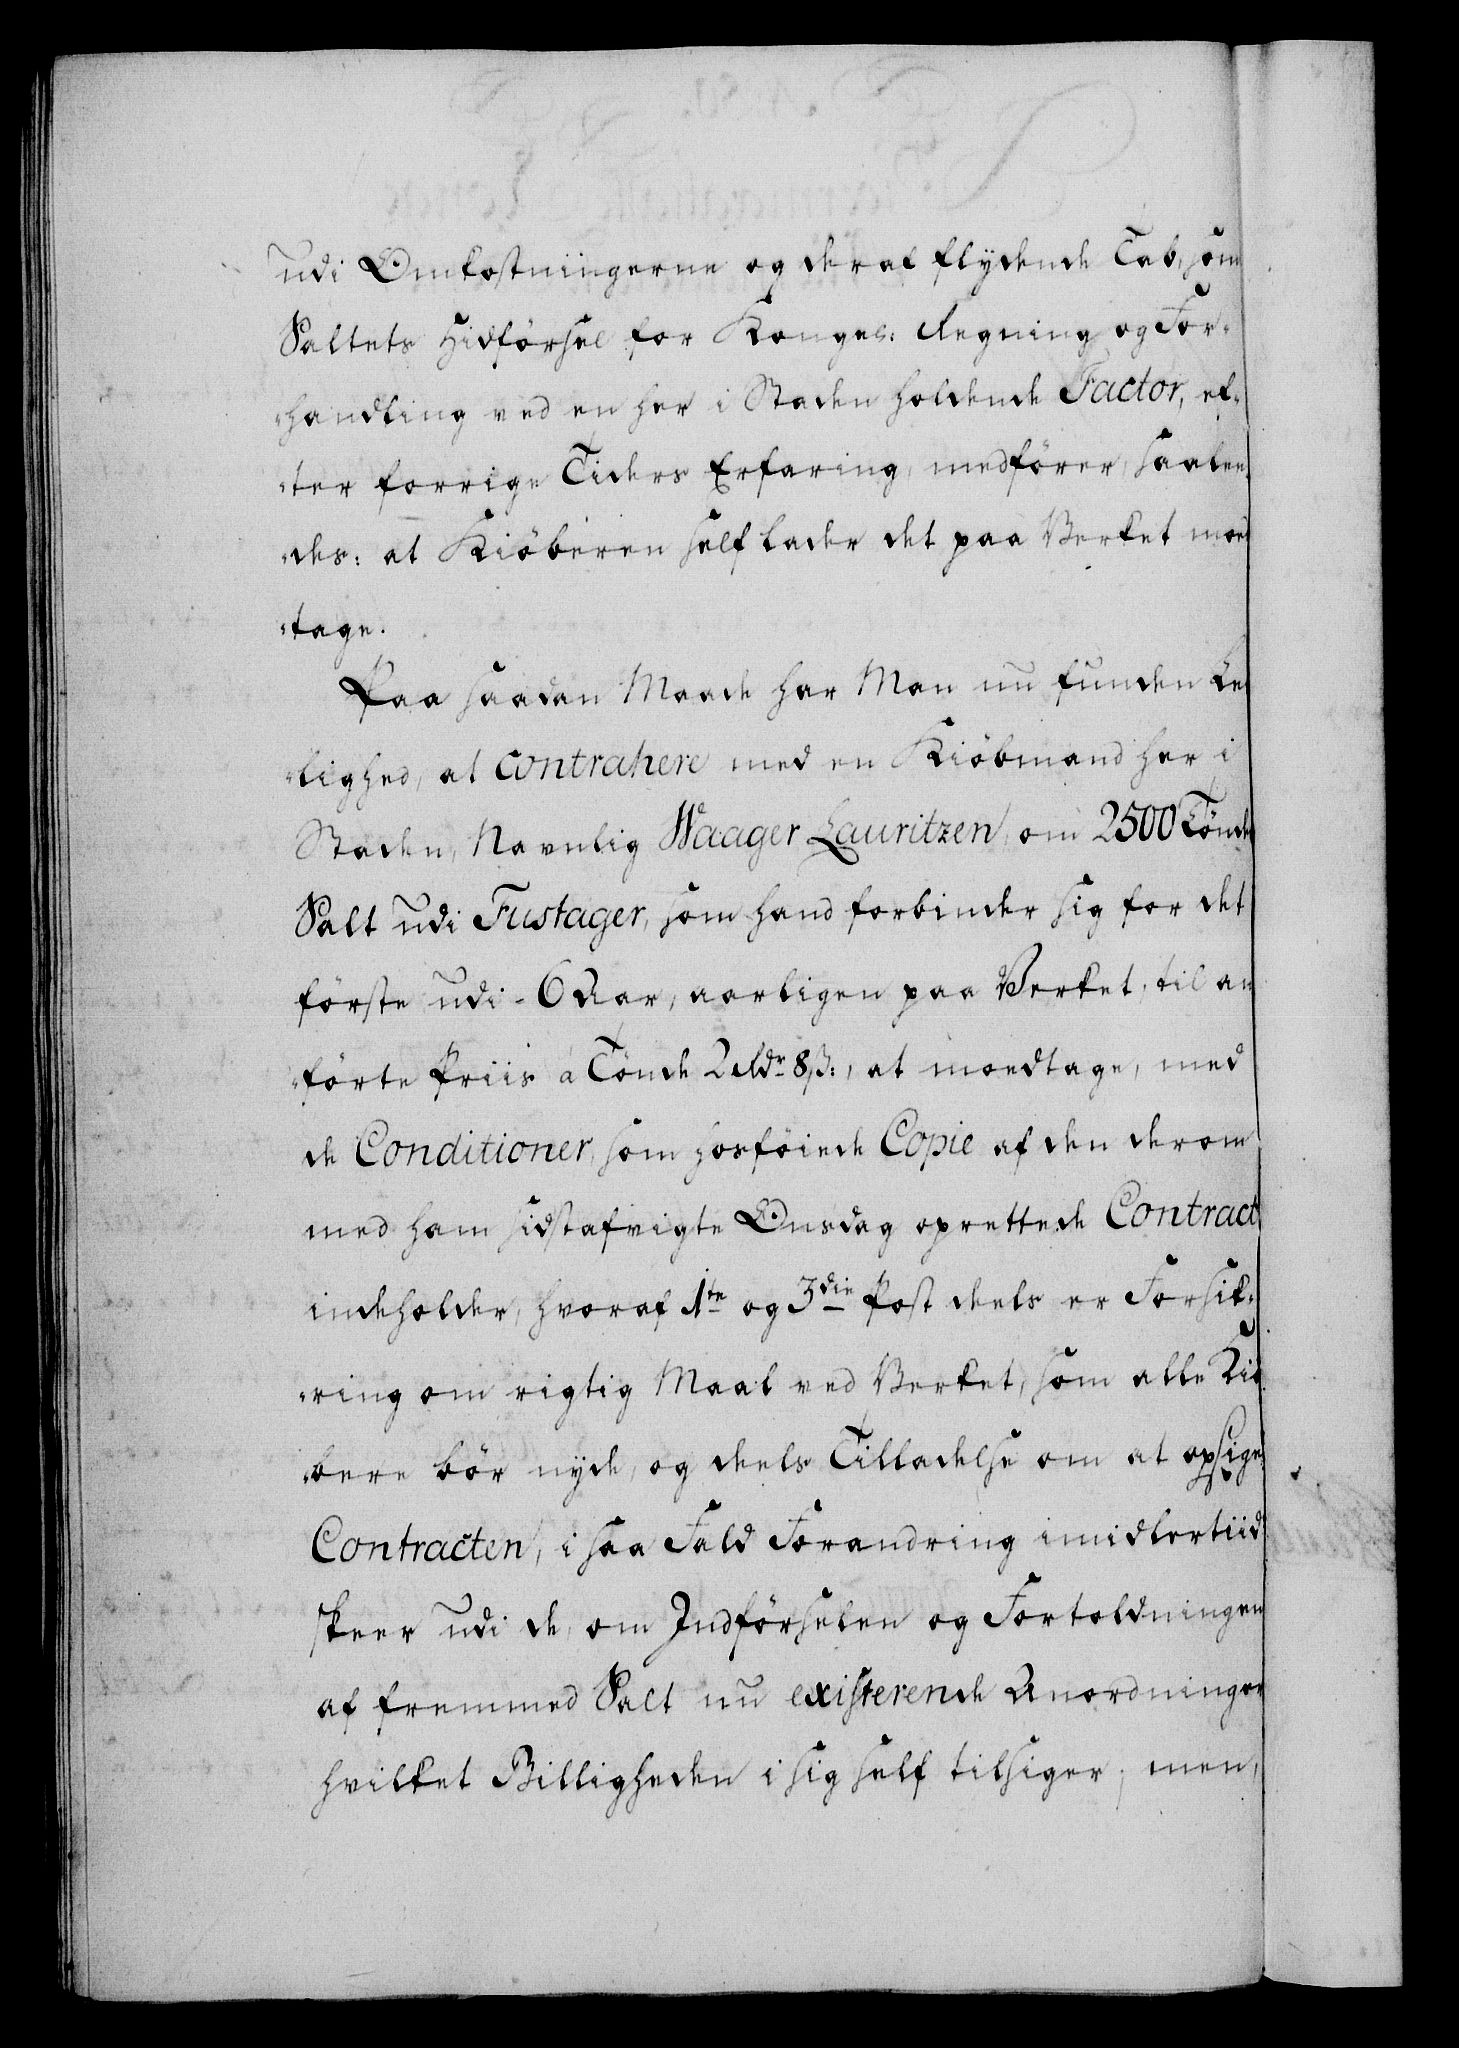 udi Omkostningerne og deraf flydende Tab, som
Saltets Hidförsel for Kongel: Regning og For-
handling ved en her i Staden holdende Factor, ef-
ter forrige Tiders Erfaring, medförer, saalee
des: at Kiöberen self lader det paa Verket moed
tage.
Paa saadan Maade har Man nu funden Lei
lighed, at contrahere med en Kiöbmand her i
Staden, Navnlig Waager Lauritzen, om 2500 Tönder
Salt udi Fustager, som hand forbinder sig for det
förste udi 6 Aar, aarligen paa Verket, til an
förte Priis a Tönde 2 Rdr 8 ß:, at moedtage, med
de Conditioner, som hosföiede Copie af den derom
med ham sidstafvigte Onsdag oprettede Contract
indeholder, hvoraf 1te og 3die Post deels er Forsik-
ring om rigtig Maal ved Verket, som alle Kiö
bere bör nyde, og deels Tilladelse om at opsige
Contracten, i saa Fald Forandring imidlertiid
skeer udi de, om Indförselen og Fortoldningen
af fremmed Salt nu existerende Anordninger
hvilket Billigheden i sig self tilsiger, men,